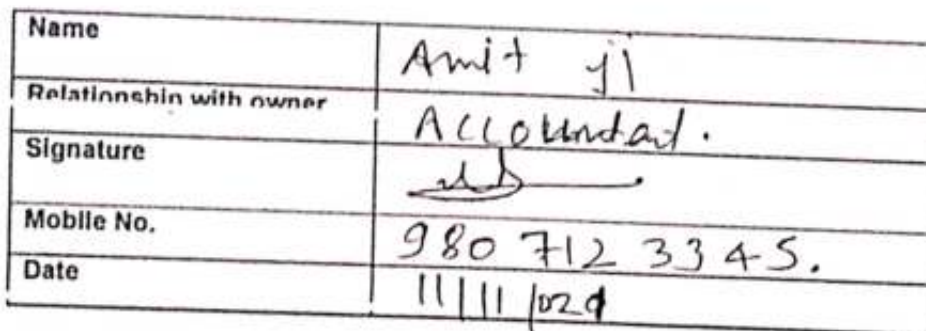 Name Amit ji
Relationship with owner Accountant.
Signature
Mobile No. 980 712 3345.
Date 11/11/